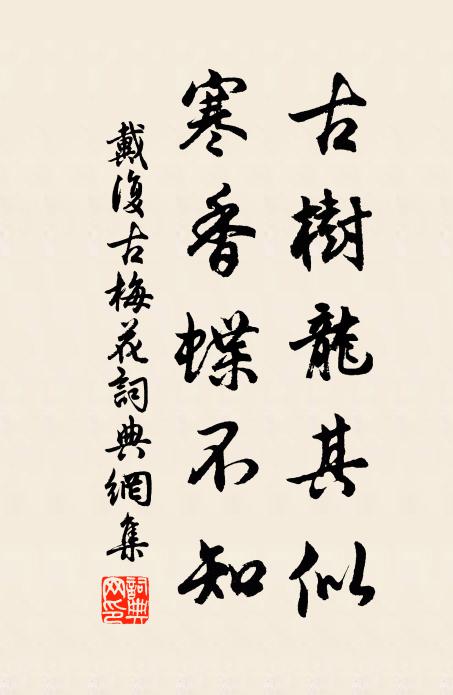 古樹龍其似
寒香蝶不知
戴復古梅花詞典網集
詞典网印